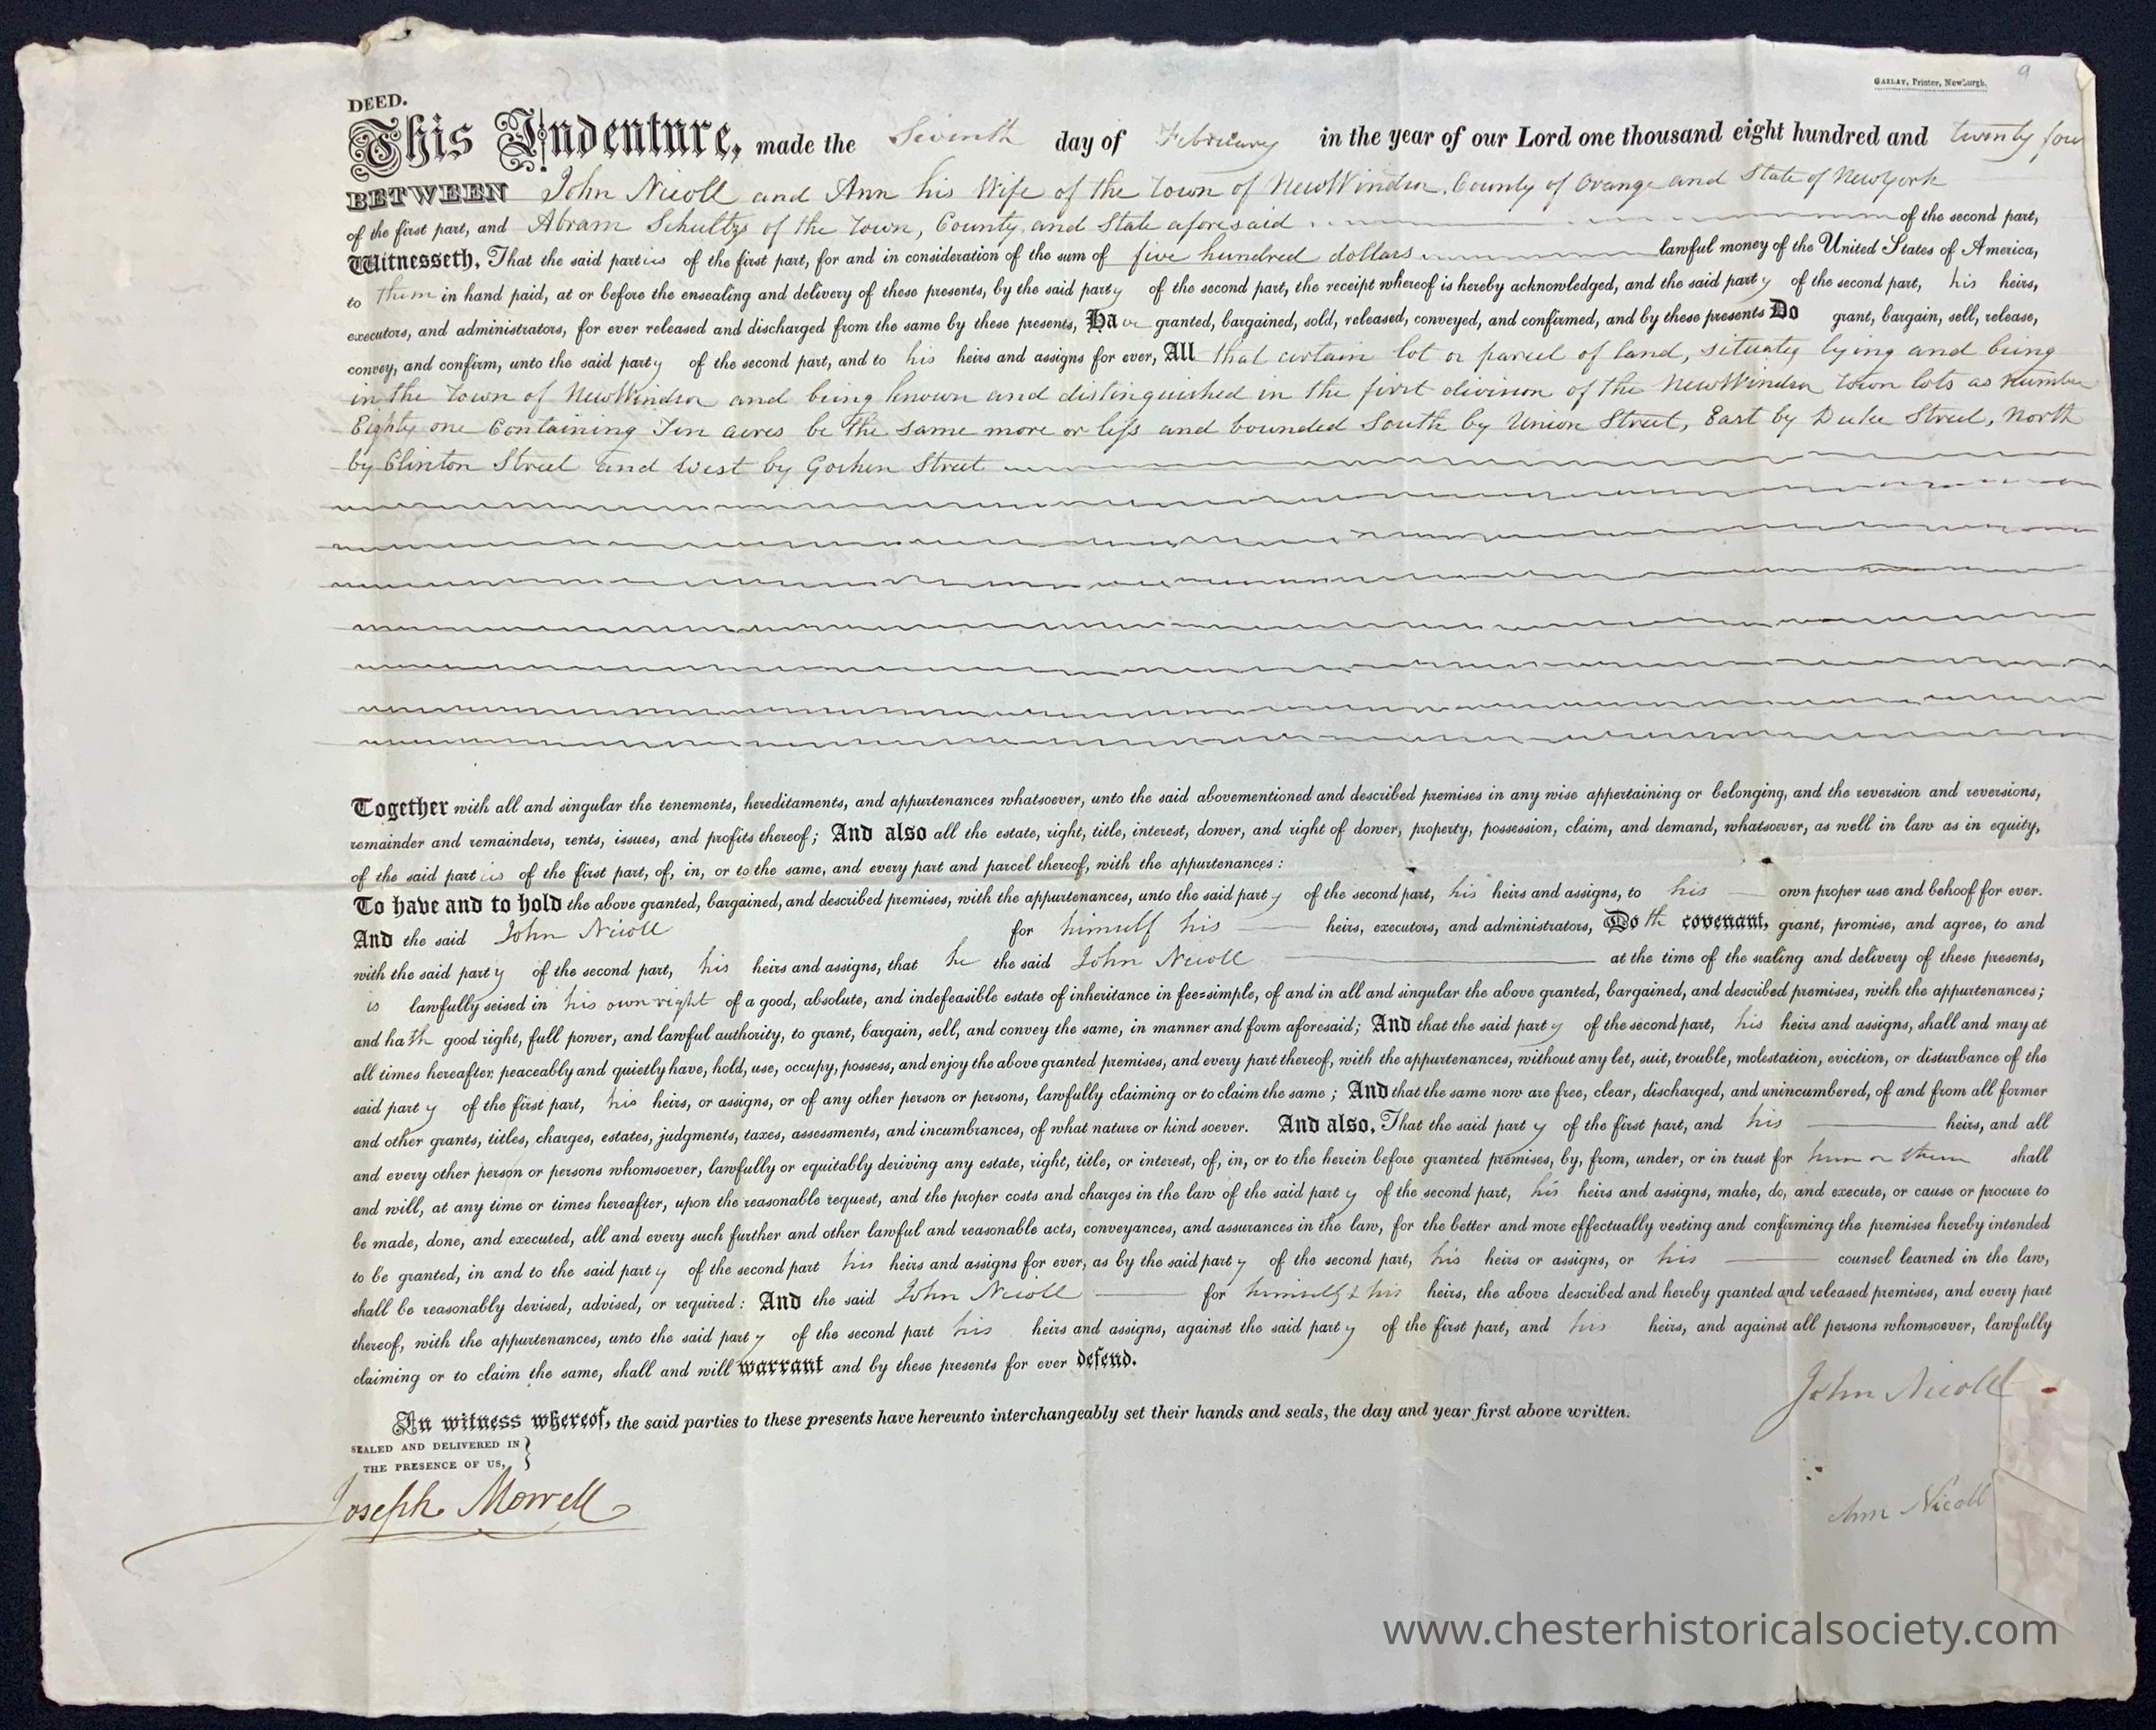 GAZLAY, Printer, Newburgh.
9
DEED.
This Indenture, made the Seventh day of February in the year of our Lord one thousand eight hundred and twenty four
BETWEEN John Nicoll and Ann his Wife of the Town of NewWindsor, County of Orange and State of NewYork
of the first part, and Abram Schultz of the Town, County and State aforesaid of the second part,
Witnesseth, That the said parties of the first part, for and in consideration of the sum of five hundred dollars lawful money of the United States of America,
to them in hand paid, at or before the ensealing and delivery of these presents, by the said party of the second part, the receipt whereof is hereby acknowledged, and the said party of the second part, his heirs,
executors, and administrators, for ever released and discharged from the same by these presents, Have granted, bargained, sold, released, conveyed, and confirmed, and by these presents Do grant, bargain, sell, release,
convey, and confirm, unto the said party of the second part, and to his heirs and assigns for ever, All that certain lot or parcel of land, situate, lying and being
in the Town of NewWindsor and being known and distinguished in the first division of the NewWindsor Town lots as Number
Eighty one Containing Ten acres be the same more or less and bounded South by Union Street, East by Duke Street, North
by Clinton Street and West by Goshen Street
Together with all and singular the tenements, hereditaments, and appurtenances whatsoever, unto the said abovementioned and described premises in any wise appertaining or belonging, and the reversion and reversions,
remainder and remainders, rents, issues, and profits thereof; And also all the estate, right, title, interest, dower, and right of dower, property, possession, claim, and demand, whatsoever, as well in law as in equity,
of the said parties of the first part, of, in, or to the same, and every part and parcel thereof, with the appurtenances:
To have and to hold the above granted, bargained, and described premises, with the appurtenances, unto the said party of the second part, his heirs and assigns, to his own proper use and behoof for ever.
And the said John Nicoll for himself his heirs, executors, and administrators, Doth covenant, grant, promise, and agree, to and
with the said party of the second part, his heirs and assigns, that he the said John Nicoll at the time of the sealing and delivery of these presents,
is lawfully seised in his own right of a good, absolute, and indefeasible estate of inheritance in fee=simple, of and in all and singular the above granted, bargained, and described premises, with the appurtenances;
and hath good right, full power, and lawful authority, to grant, bargain, sell, and convey the same, in manner and form aforesaid; And that the said party of the second part, his heirs and assigns, shall and may at
all times hereafter, peaceably and quietly have, hold, use, occupy, possess, and enjoy the above granted premises, and every part thereof, with the appurtenances, without any let, suit, trouble, molestation, eviction, or disturbance of the
said party of the first part, his heirs, or assigns, or of any other person or persons, lawfully claiming or to claim the same; And that the same now are free, clear, discharged, and unincumbered, of and from all former
and other grants, titles, charges, estates, judgments, taxes, assessments, and incumbrances, of what nature or kind soever. And also, That the said party of the first part, and his heirs, and all
and every other person or persons whomsoever, lawfully or equitably deriving any estate, right, title, or interest, of, in, or to the herein before granted premises, by, from, under, or in trust for him or them shall
and will, at any time or times hereafter, upon the reasonable request, and the proper costs and charges in the law of the said party of the second part, his heirs and assigns, make, do, and execute, or cause or procure to
be made, done, and executed, all and every such further and other lawful and reasonable acts, conveyances, and assurances in the law, for the better and more effectually vesting and confirming the premises hereby intended
to be granted, in and to the said party of the second part his heirs and assigns for ever, as by the said party of the second part, his heirs or assigns, or his counsel learned in the law,
shall be reasonably devised, advised, or required: And the said John Nicoll for himself & his heirs, the above described and hereby granted and released premises, and every part
thereof, with the appurtenances, unto the said party of the second part his heirs and assigns, against the said party of the first part, and his heirs, and against all persons whomsoever, lawfully
claiming or to claim the same, shall and will warrant and by these presents for ever defend.
In witness whereof, the said parties to these presents have hereunto interchangeably set their hands and seals, the day and year first above written.
SEALED AND DELIVERED IN }
THE PRESENCE OF US,
John Nicoll
Joseph Morrell
Ann Nicoll
www.chesterhistoricalsociety.com